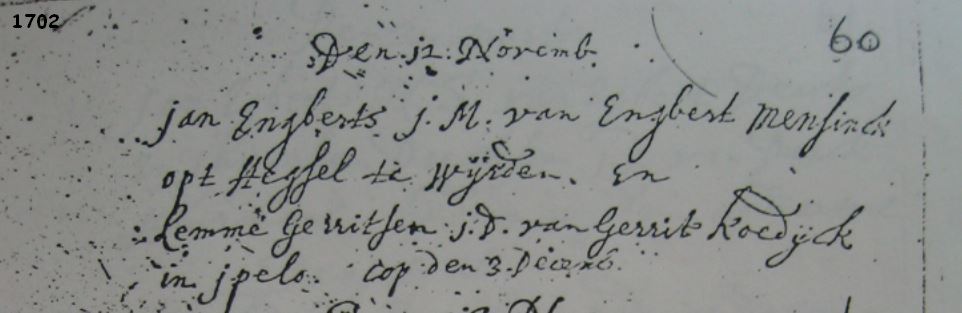 1702
60
Den 12. Novemb.
jan Engberts j. M. van Engbert Mensinck
opt stegsel te Wÿrden. En
Lemme Gerritsen j. D. van Gerrit Koedÿck
in jpelo. cop den 3. Decemb.